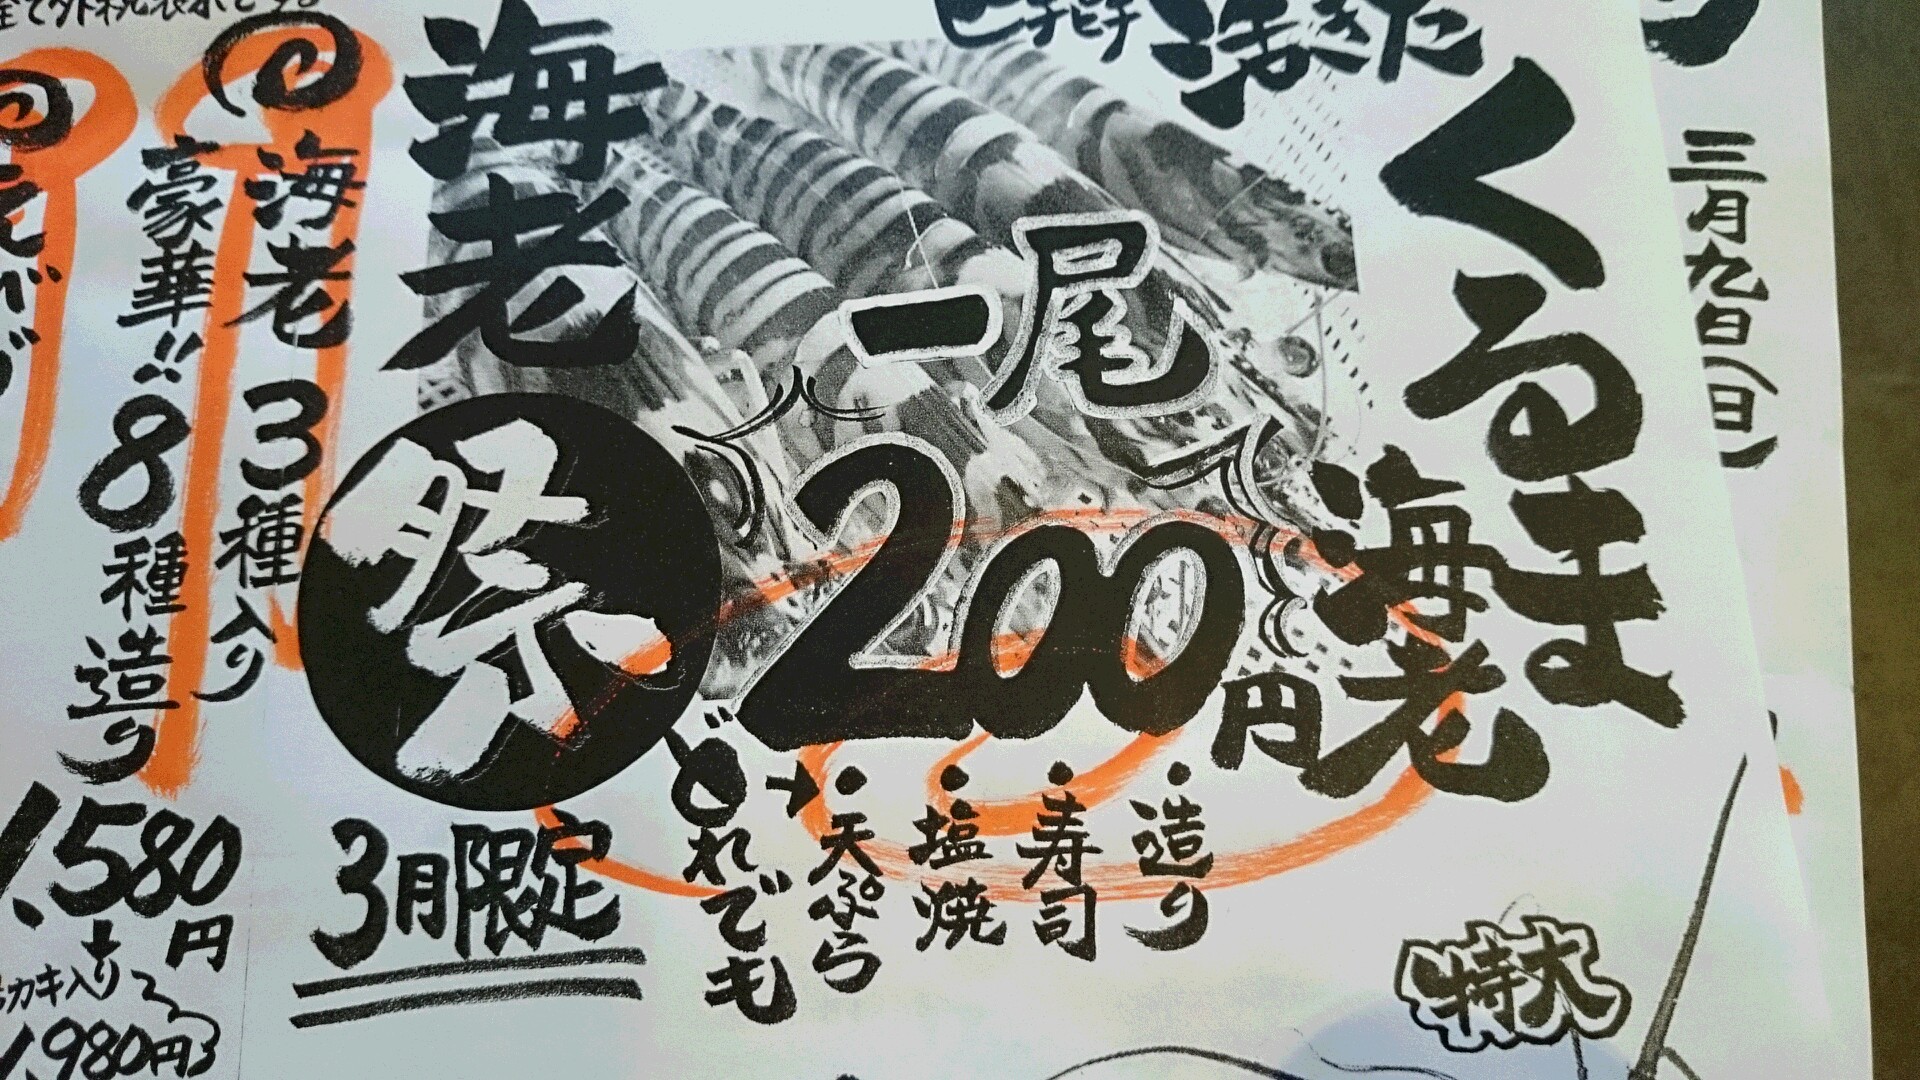 三月九日(日)
ピチピチ
活きた
くるま
海老
一尾
200円
・造り
・寿司
・塩焼
・天ぷら
どれでも
特大
海老
祭
3月限定
海老3種入り
豪華!!8種造り
1,580円
カキ入り
1,980円
全て外税表示です。